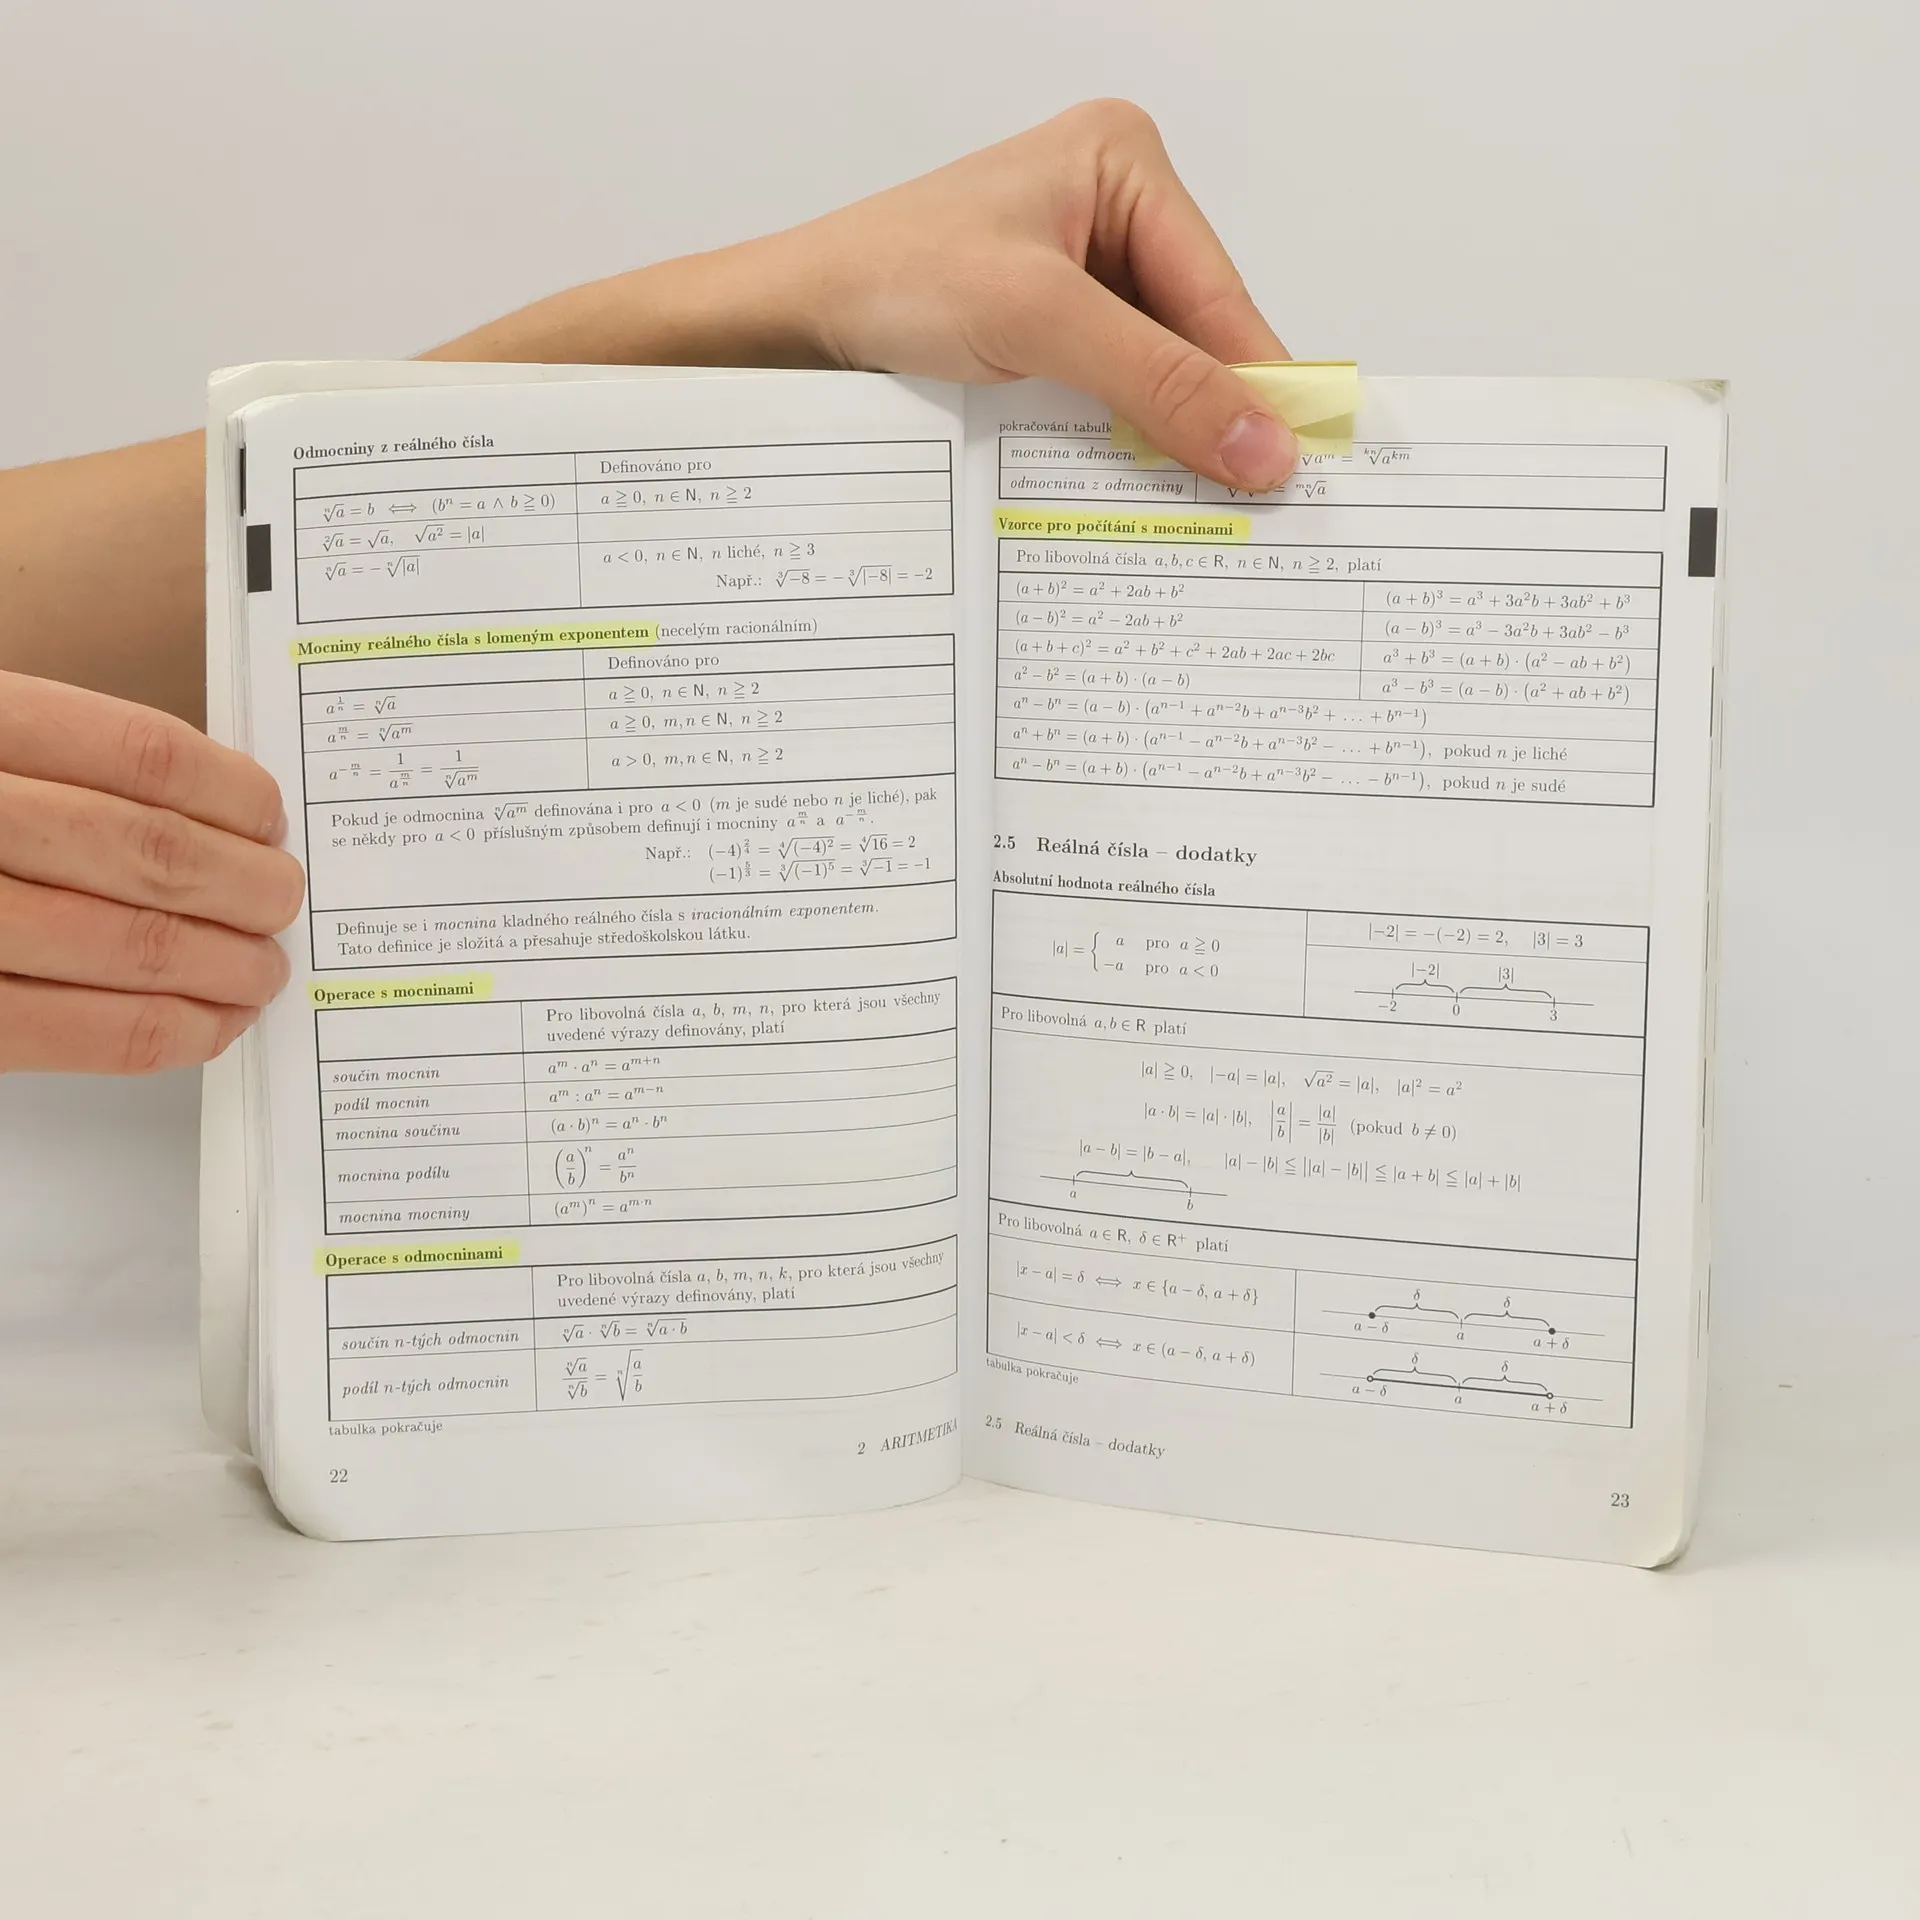 Odmocniny z reálného čísla
Definováno pro
ⁿ√a = b ⟺ (bⁿ = a ∧ b ≧ 0) a ≧ 0, n ∈ N, n ≧ 2
²√a = √a, √a² = |a|
ⁿ√a = − ⁿ√|a| a < 0, n ∈ N, n liché, n ≧ 3
Např.: ³√−8 = − ³√|−8| = −2
Mocniny reálného čísla s lomeným exponentem (necelým racionálním)
Definováno pro
a^(1/n) = ⁿ√a a ≧ 0, n ∈ N, n ≧ 2
a^(m/n) = ⁿ√a^m a ≧ 0, m, n ∈ N, n ≧ 2
a^(−m/n) = 1/a^(m/n) = 1/ⁿ√a^m a > 0, m, n ∈ N, n ≧ 2
Pokud je odmocnina ⁿ√a^m definována i pro a < 0 (m je sudé nebo n je liché), pak
se někdy pro a < 0 příslušným způsobem definují i mocniny a^(m/n) a a^(−m/n).
Např.: (−4)^(2/4) = ⁴√(−4)² = ⁴√16 = 2
(−1)^(5/3) = ³√(−1)⁵ = ³√−1 = −1
Definuje se i mocnina kladného reálného čísla s iracionálním exponentem.
Tato definice je složitá a přesahuje středoškolskou látku.
Operace s mocninami
Pro libovolná čísla a, b, m, n, pro která jsou všechny
uvedené výrazy definovány, platí
součin mocnin a^m · a^n = a^(m+n)
podíl mocnin a^m : a^n = a^(m−n)
mocnina součinu (a · b)^n = a^n · b^n
mocnina podílu (a/b)^n = a^n/b^n
mocnina mocniny (a^m)^n = a^(m·n)
Operace s odmocninami
Pro libovolná čísla a, b, m, n, k, pro která jsou všechny
uvedené výrazy definovány, platí
součin n-tých odmocnin ⁿ√a · ⁿ√b = ⁿ√a · b
podíl n-tých odmocnin ⁿ√a/ⁿ√b = ⁿ√(a/b)
tabulka pokračuje
2 ARITMETIKA
22
pokračování
mocnina √a^m = ^(kn)√a^(km)
odmocnina z odmocniny = ^(mn)√a
Vzorce pro počítání s mocninami
Pro libovolná čísla a, b, c ∈ R, n ∈ N, n ≧ 2, platí
(a + b)² = a² + 2ab + b² (a + b)³ = a³ + 3a²b + 3ab² + b³
(a − b)² = a² − 2ab + b² (a − b)³ = a³ − 3a²b + 3ab² − b³
(a + b + c)² = a² + b² + c² + 2ab + 2ac + 2bc a³ + b³ = (a + b) · (a² − ab + b²)
a² − b² = (a + b) · (a − b) a³ − b³ = (a − b) · (a² + ab + b²)
a^n − b^n = (a − b) · (a^(n−1) + a^(n−2)b + a^(n−3)b² + … + b^(n−1))
a^n + b^n = (a + b) · (a^(n−1) − a^(n−2)b + a^(n−3)b² − … + b^(n−1)), pokud n je liché
a^n − b^n = (a + b) · (a^(n−1) − a^(n−2)b + a^(n−3)b² − … − b^(n−1)), pokud n je sudé
2.5 Reálná čísla – dodatky
Absolutní hodnota reálného čísla
|a| = { a pro a ≧ 0
−a pro a < 0
|−2| = −(−2) = 2, |3| = 3
|−2| |3|
−2 0 3
Pro libovolná a, b ∈ R platí
|a| ≧ 0, |−a| = |a|, √a² = |a|, |a|² = a²
|a · b| = |a| · |b|, |a/b| = |a|/|b| (pokud b ≠ 0)
|a − b| = |b − a|, |a| − |b| ≦ ||a| − |b|| ≦ |a + b| ≦ |a| + |b|
a b
Pro libovolná a ∈ R, δ ∈ R⁺ platí
|x − a| = δ ⟺ x ∈ {a − δ, a + δ}
δ δ
a − δ a a + δ
|x − a| < δ ⟺ x ∈ (a − δ, a + δ)
δ δ
a − δ a a + δ
tabulka pokračuje
2.5 Reálná čísla – dodatky
23